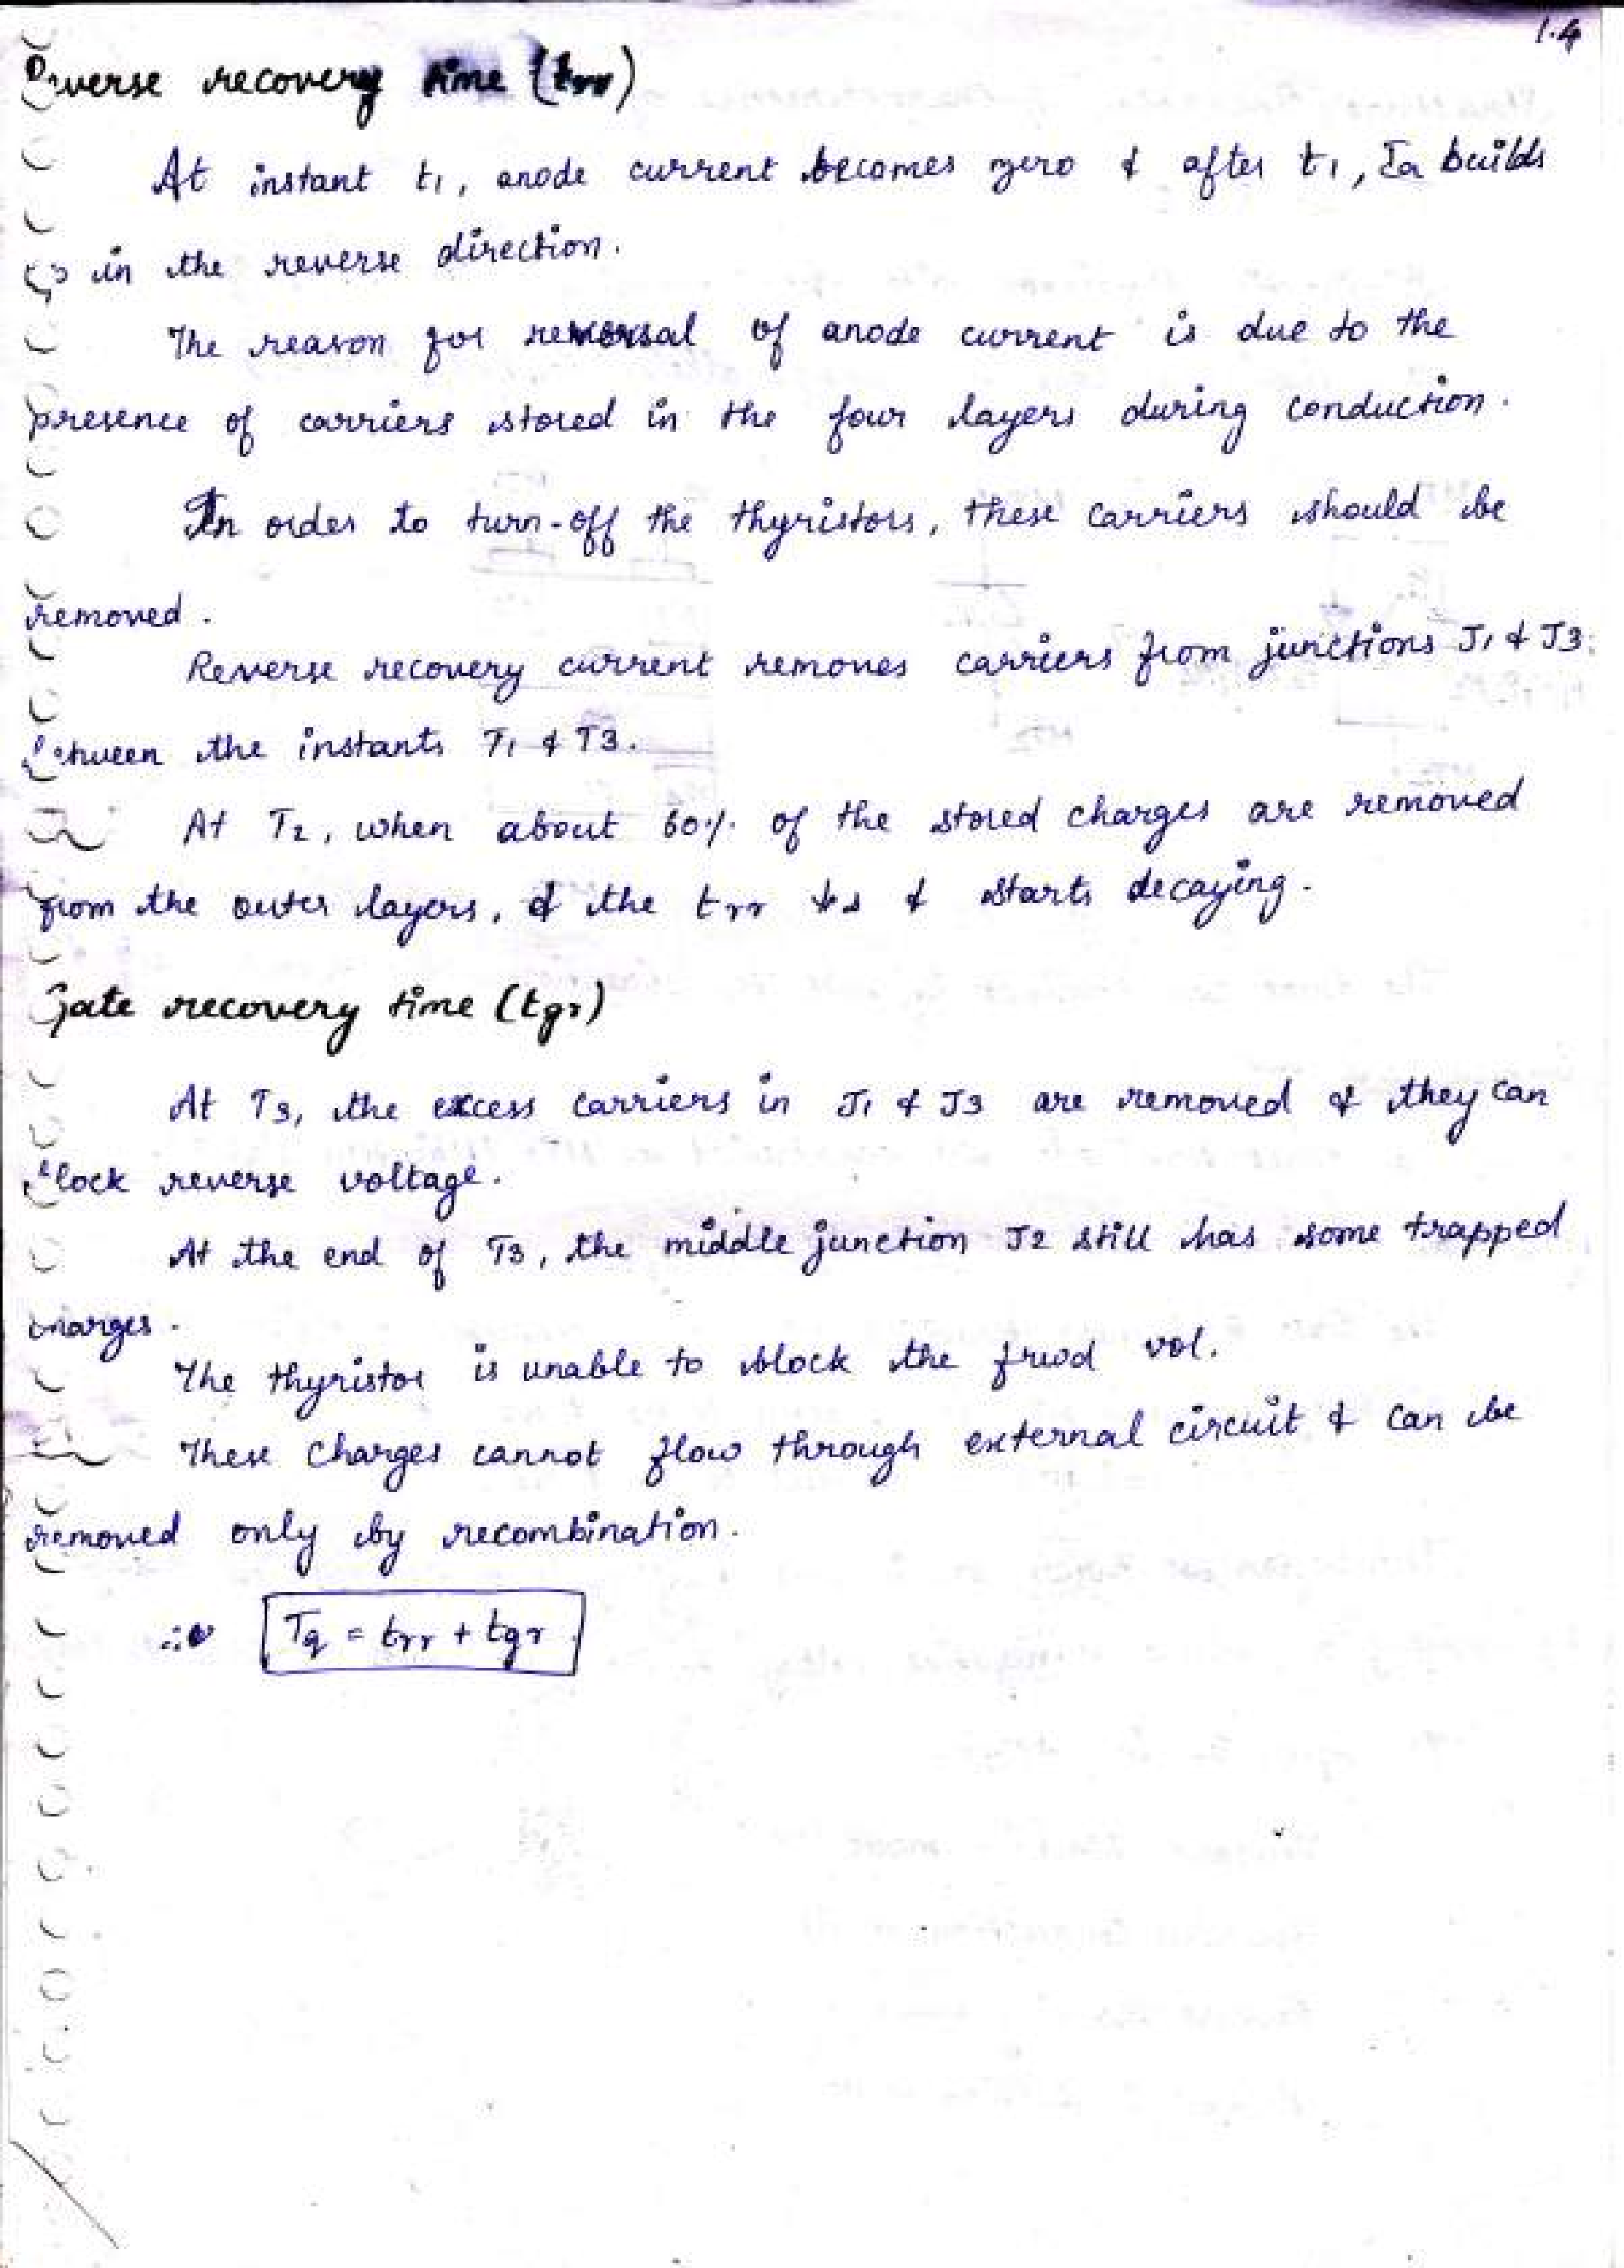 1.4
Reverse recovery time (trr)
At instant t1, anode current becomes zero & after t1, Ia builds
up in the reverse direction.
The reason for reversal of anode current is due to the
presence of carriers stored in the four layers during conduction.
In order to turn-off the thyristors, these carriers should be
removed.
Reverse recovery current removes carriers from junctions J1 & J3
between the instants T1 & T3.
At T2, when about 60% of the stored charges are removed
from the outer layers, & the trr ↓s & starts decaying.
Gate recovery time (tgr)
At T3, the excess carriers in J1 & J3 are removed & they can
block reverse voltage.
At the end of T3, the middle junction J2 still has some trapped
charges.
The thyristor is unable to block the frwd vol.
These charges cannot flow through external circuit & can be
removed only by recombination.
∴ Tq = trr + tgr